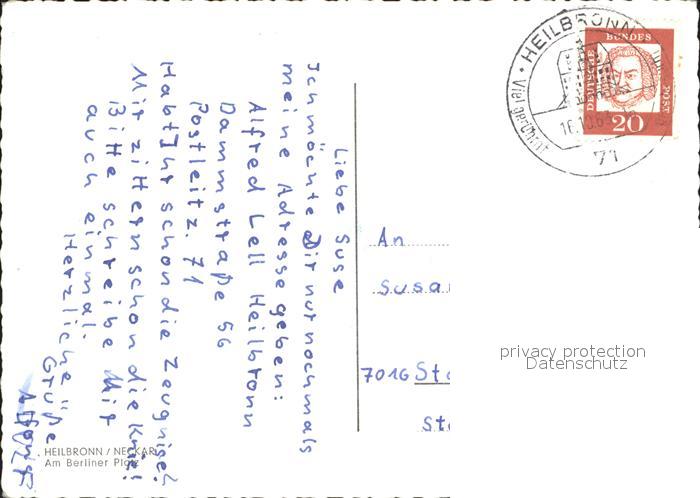 Liebe Suse
Ich möchte Dir nur nochmals
meine Adresse geben:
Alfred Lell Heilbronn
Dammstraße 56
Postleitz. 71
Habt Ihr schon die Zeugnise?
Mir zittern schon die Knie!
Bitte schreibe Mir
auch einmal.
Herzliche
Grüße
An
Susa
7016 Ste
Ste
HEILBRONN / NECKAR
Am Berliner Platz
HEILBRONN
Vielgerühmt
16.10.63
71
DEUTSCHE
BUNDES
POST
20
privacy protection
Datenschutz